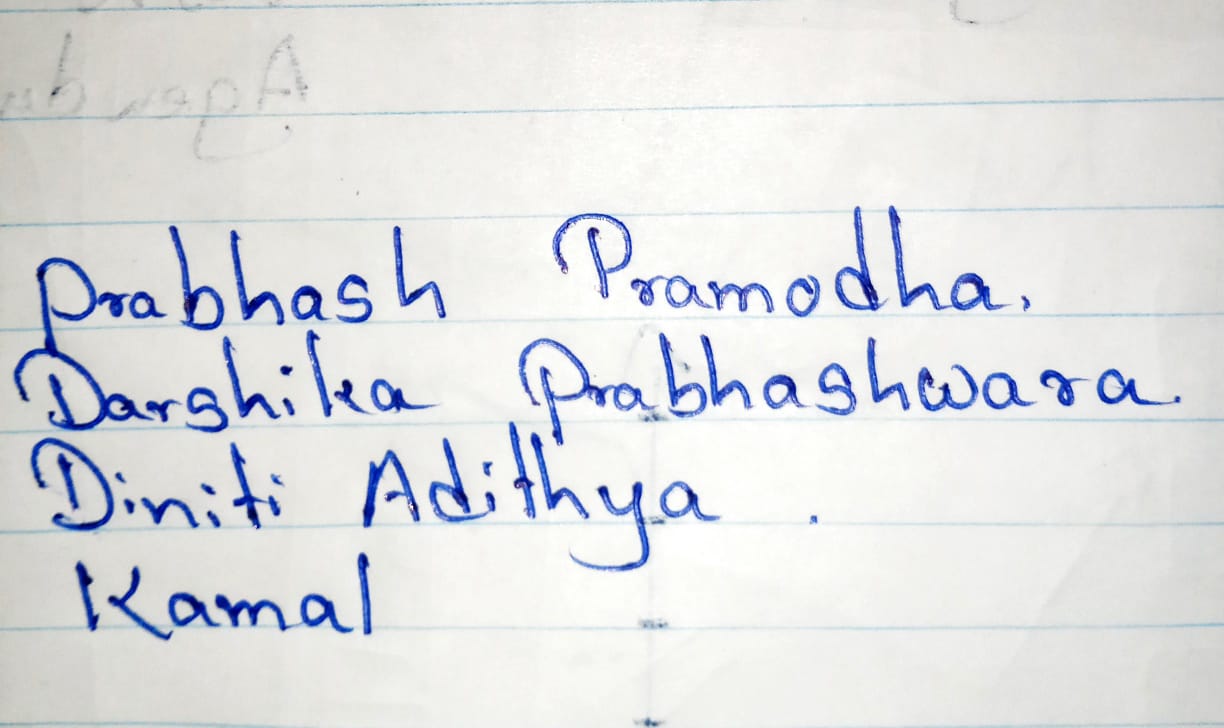 Prabhash Pramodha.
Darshika Prabhashwara.
Diniti Adithya .
Kamal